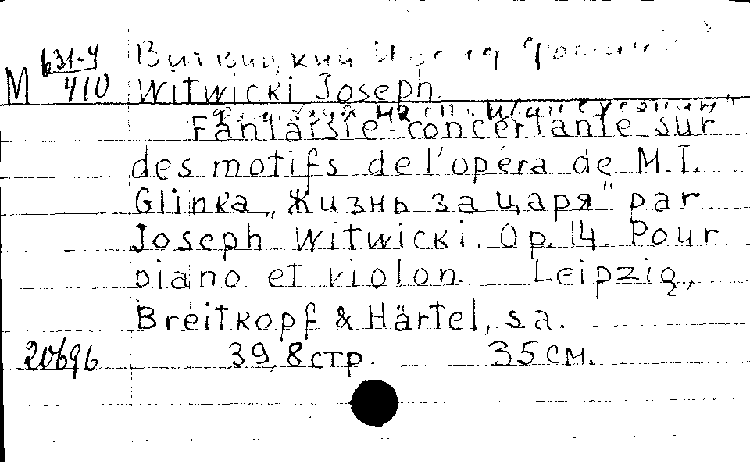 631-4
М 410
Витвицкий
Witwicki Joseph.
Fantaisie concertante sur
des motifs de l'opéra de M.I.
Glinka „Жизнь за царя" par
Joseph Witwicki. Op. 14. Pour
piano et violon. Leipzig,
Breitkopf & Härtel, s.a.
20696 39, 8 стр. 35 см.